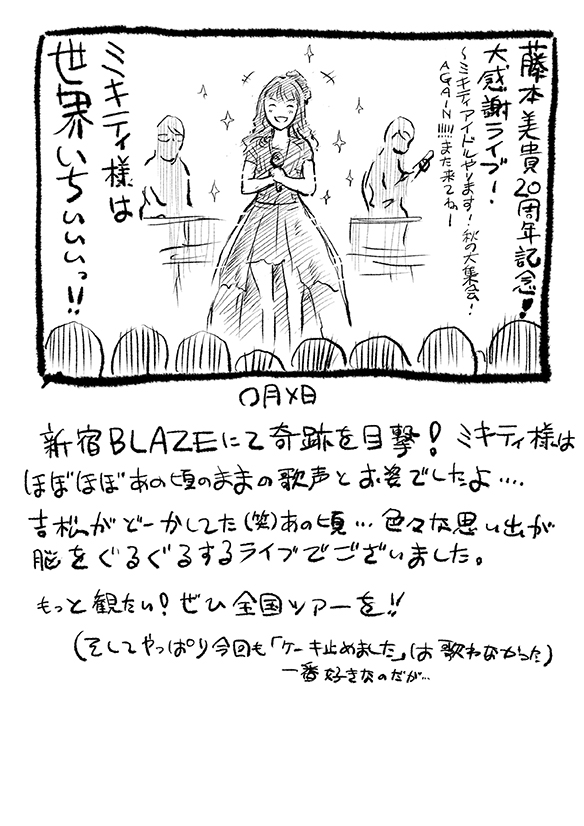 藤本美貴20周年記念!
大感謝ライブー!
〜ミキティアイドルやります!秋の大集会!
AGAIN!!!!!また来てねー
ミキティ様は
世界いちぃぃぃっ!!
〇月×日
新宿BLAZEにて奇跡を目撃!ミキティ様は
ほぼほぼあの頃のままの歌声とお姿でしたよ‥‥
吉松がどーかしてた(笑)あの頃…色々な思い出が
脳をぐるぐるするライブでございました。
もっと観たい!ぜひ全国ツアーを!!
(そしてやっぱり今回も「ケーキ止めました」は歌わなかった)
一番好きなのだが…